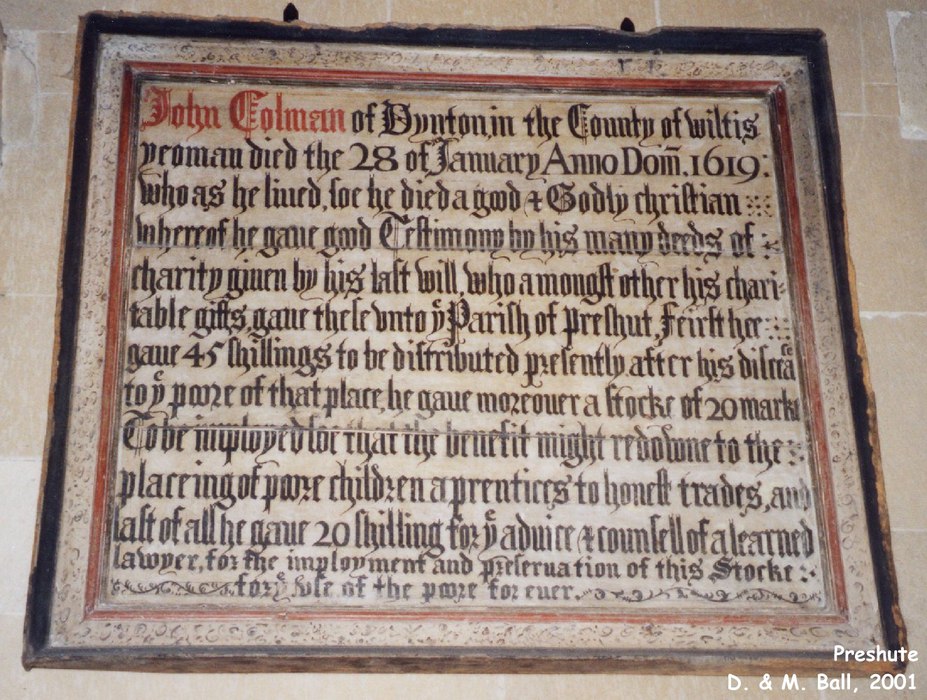 John Colman of Dynton, in the County of wiltis
yeoman died the 28 of January Anno Dom̄. 1619:
who as he liued, soe he died a good & Godly christian
whereof he gaue good Testimony by his many deeds of
charity giuen by his last will, who amongst other his chari-
table gifts, gaue these vnto yͤ Parish of Preshut, Feirst hee
gaue 45 shillings to be distributed presently after his disceaſe
to yͤ poore of that place, he gaue moreouer a stocke of 20 marke
To be imployed soe that the benefit might redowne to the
placeing of poore children aprentices to honest trades, and
last of all he gaue 20 shilling for yͤ aduice & counsell of a learned
lawyer, for the imployment and preseruation of this Stocke
for yͤ vse of the poore for euer.
Preshute
D. & M. Ball, 2001